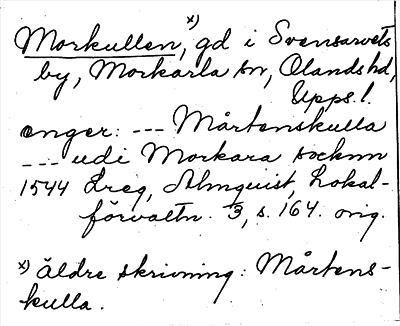 x)
Morkullen, gd i Svensarvets
by, Morkarla sn, Olands hd,
Upps. l.
enger: --- Mårtenskulla
--- udi Morkara socknn
1544 Lreg, Almquist, Lokal-
förvaltn. 3, s. 164. orig.
x) Äldre skrivning: Mårtens-
kulla.